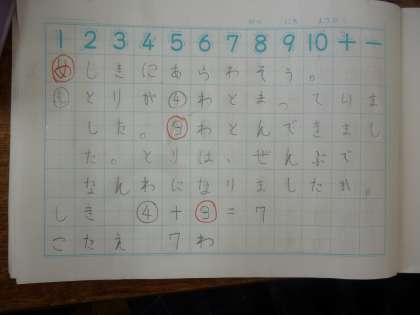 がつ にち ようび
1 2 3 4 5 6 7 8 9 10 + -
め しきにあらわそう。
とりが④わとまっていま
した。③わとんできまし
た。とりは、ぜんぶで
なんわになりましたか。
しき ④+③=7
こたえ 7わ